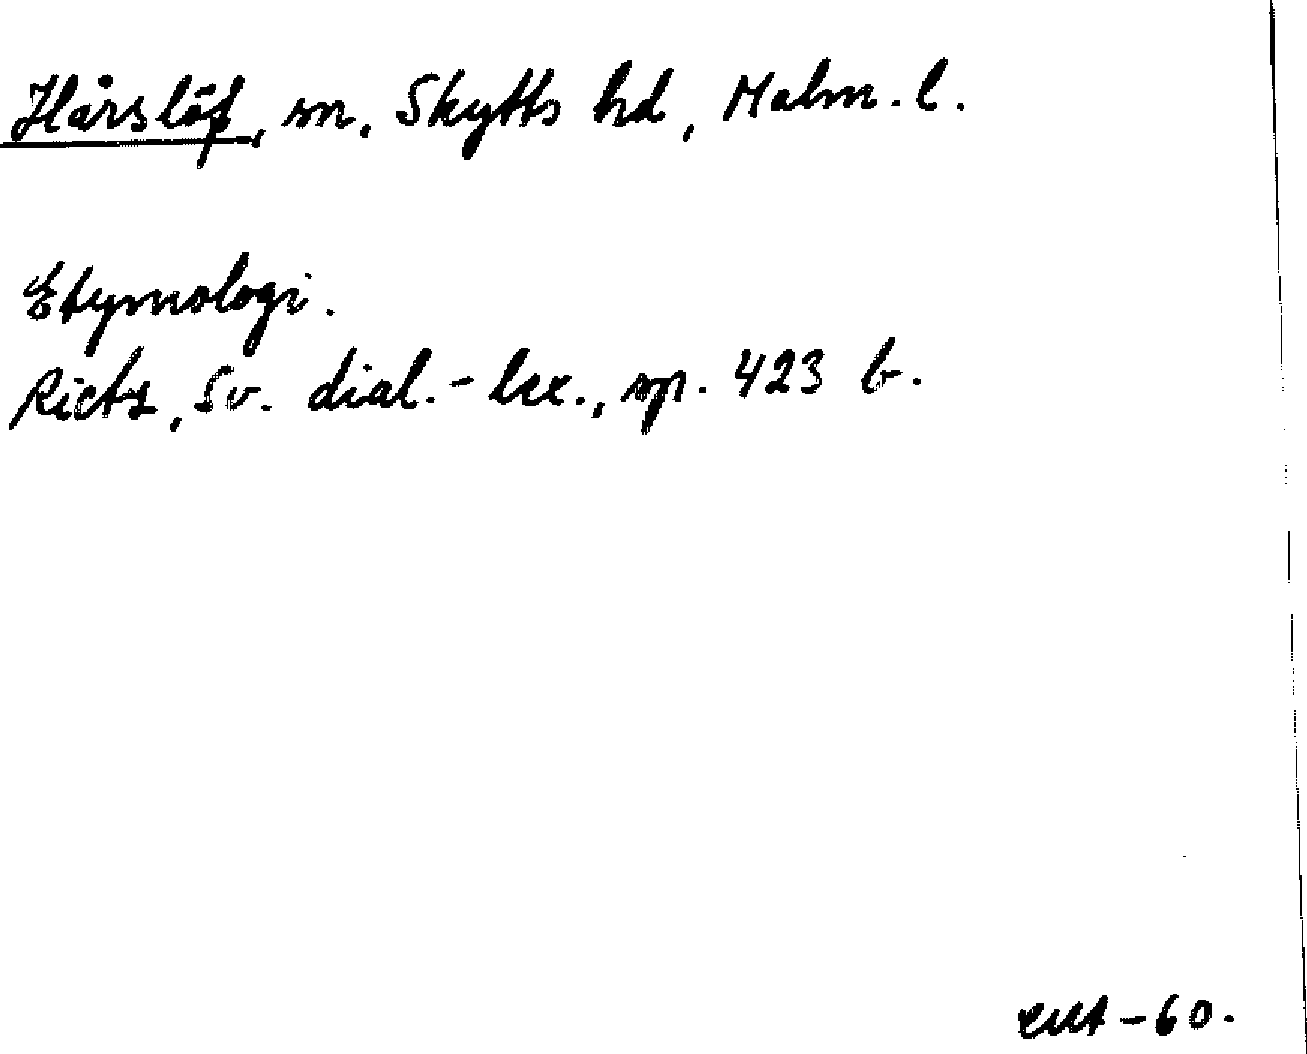 Hårslöf, sn, Skytts hd, Malm. l.
Etymologi.
Rietz, Sv. dial.-lex., sp. 423 b.
-60.